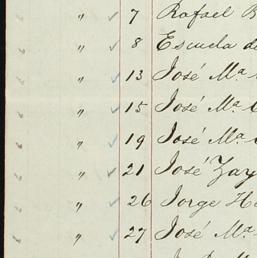 " ✓ 7 Rafael B
" ✓ 8 Escuela de
" ✓ 13 José Mª
" ✓ 15 José Mª
" ✓ 19 José Mª
" ✓ 21 José Zay
" ✓ 26 Jorge H
" ✓ 27 José Mª